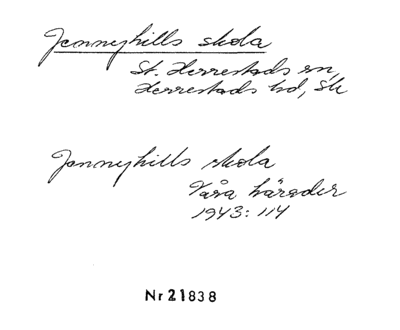 Jennyhills skola
St. Herrestads sn,
Herrestads hd, Sk
Jennyhills skola
Våra härader
1943: 114
Nr 21838